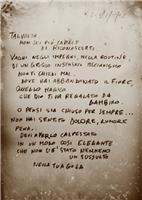 TALVOLTA
NON SEI PIÙ CAPACE
DI RICONOSCERTI
VAGHI NEGLI IMPEGNI, NELLA ROUTINE
DI UN GRIGIO INSENSATO MECCANISMO
NON TI CHIEDI MAI...
DOVE HAI ABBANDONATO IL FIORE,
QUELLO MAGICO
CHE DIO TI HA REGALATO DA
BAMBINO.
O PENSI SIA CHIUSO PER SEMPRE...
NON HAI SENTITO DOLORE, RUMORE
PENA.
DEVI AVERLO CALPESTATO
IN UN MODO COSÌ ELEGANTE
CHE NON C'È STATO NEMMENO
UN SUSSULTO
NELLA TUA GOLA